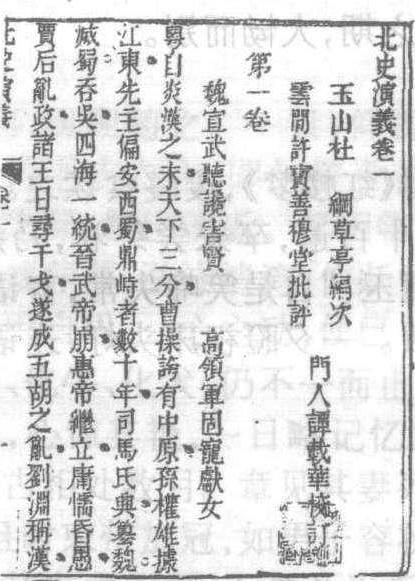 北史演義卷一
玉山杜　綱草亭編次
雲間許寶善穆堂批評
門人譚載華校訂
第一卷
魏宣武聽讒害賢　高領軍固寵獻女
粵自炎漢之末天下三分曹操誇有中原孫權雄據
江東先主偏安西蜀鼎峙者數十年司馬氏興篡魏
滅蜀吞吳四海一統晉武帝崩惠帝繼立庸懦昏愚
賈后亂政諸王日尋干戈遂成五胡之亂劉淵稱漢
北史演義
卷一